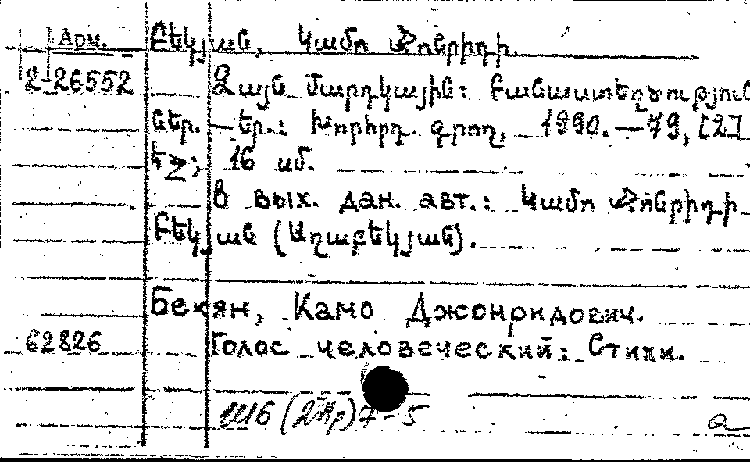 Арм. Բեկյան, Կամո Ջոնրիդի
2-26552 Ձայն մարդկային: Բանաստեղծություն
ներ. — Եր.: Խորհրդ. գրող, 1990. — 79, [2]
էջ; 16 սմ.
В вых. дан. авт.: Կամո Ջոնրիդի
Բեկյան (Աղաբեկյան).
Бекян, Камо Джонридович.
62826 Голос человеческий: Стихи.
Ш6 (2=Ар) 7-5